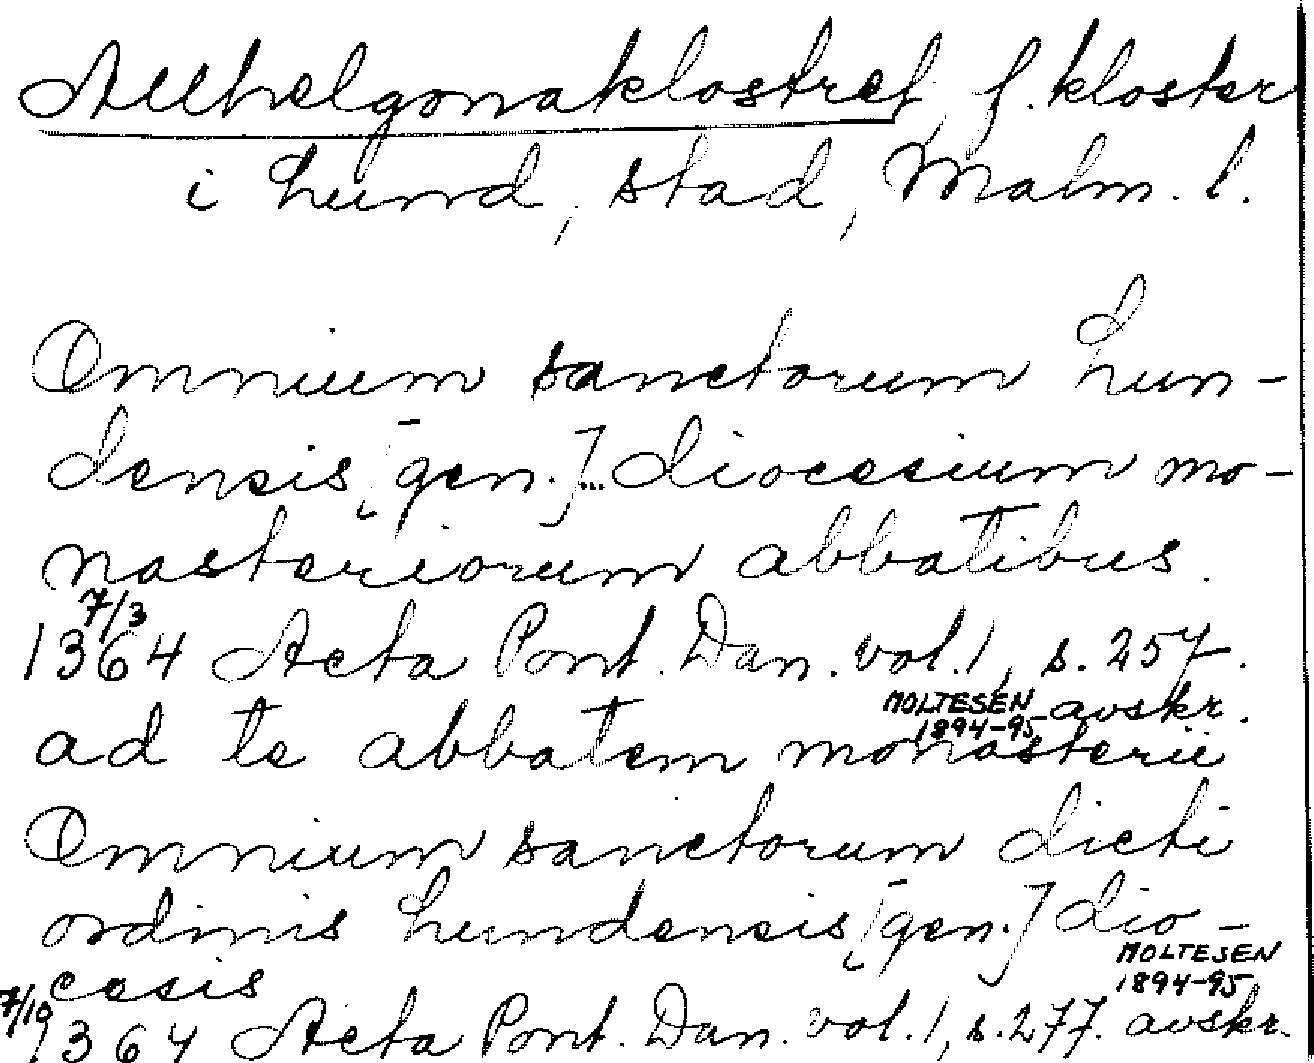 Allhelgonaklostret, f. kloster
i Lund, stad, Malm. l.
Omnium sanctorum Lun-
densis [gen.]... diocesium mo-
nasteriorum abbatibus.
7/3
1364 Acta Pont. Dan. vol. 1, s. 257.
MOLTESEN avskr.
1894-95
ad te abbatem monasterii
Omnium sanctorum dicti
ordinis Lundensis [gen.] dio-
cesis
MOLTESEN
1894-95
7/10
1364 Acta Pont. Dan. vol. 1, s. 277. avskr.